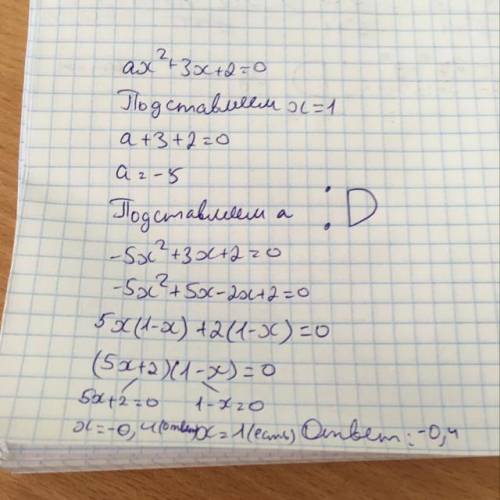 ax²+3x+2=0
Подставляем x=1
a+3+2=0
a=-5
Подставляем a :D
-5x²+3x+2=0
-5x²+5x-2x+2=0
5x(1-x)+2(1-x)=0
(5x+2)(1-x)=0
5x+2=0 1-x=0
x=-0,4(ответ) x=1(есть) Ответ:-0,4